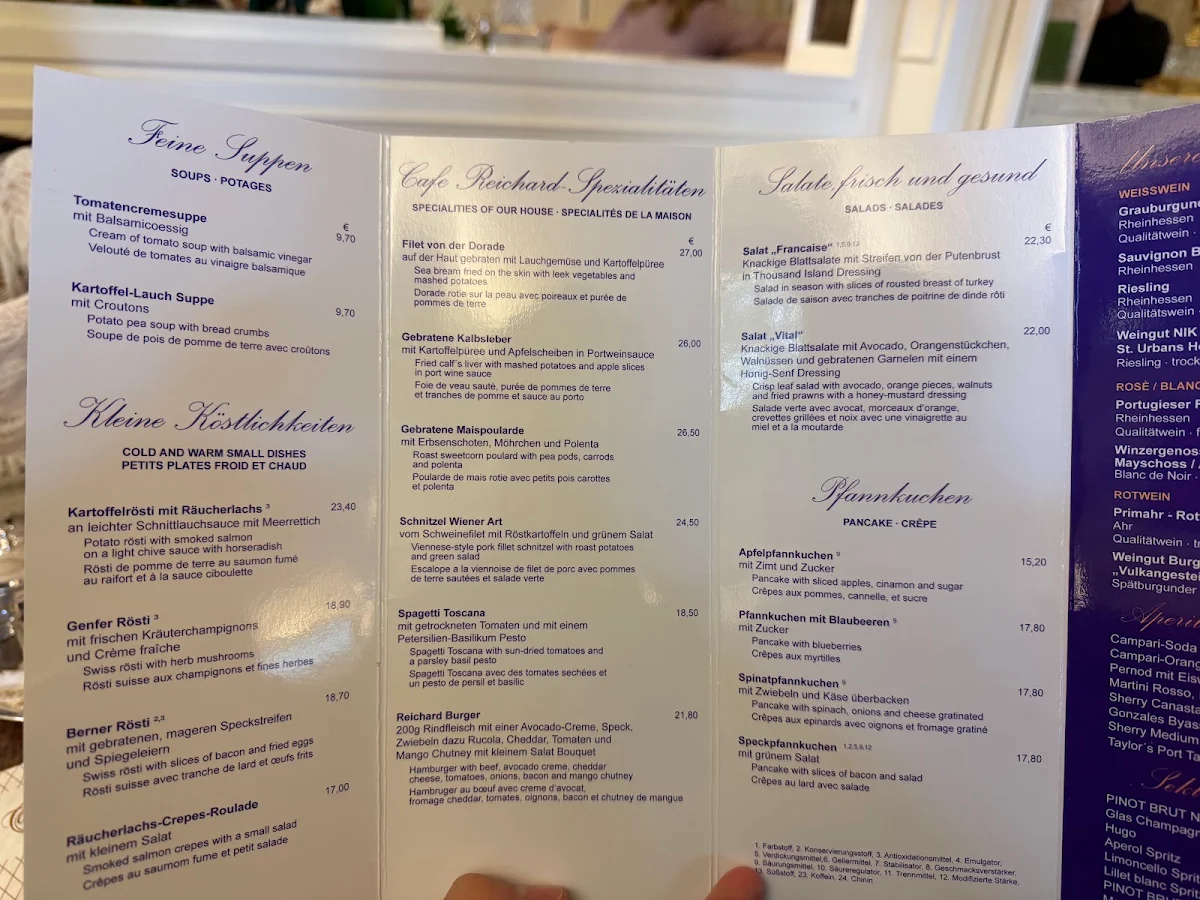 Feine Suppen
SOUPS · POTAGES
€
Tomatencremesuppe
9,70
mit Balsamicoessig
Cream of tomato soup with balsamic vinegar
Velouté de tomates au vinaigre balsamique
Kartoffel-Lauch Suppe
9,70
mit Croutons
Potato pea soup with bread crumbs
Soupe de pois de pomme de terre avec croûtons
Kleine Köstlichkeiten
COLD AND WARM SMALL DISHES
PETITS PLATES FROID ET CHAUD
Kartoffelrösti mit Räucherlachs ³
23,40
an leichter Schnittlauchsauce mit Meerrettich
Potato rösti with smoked salmon
on a light chive sauce with horseradish
Rösti de pomme de terre au saumon fumé
au raifort et à la sauce ciboulette
Genfer Rösti ³
18,90
mit frischen Kräuterchampignons
und Crème fraîche
Swiss rösti with herb mushrooms
Rösti suisse aux champignons et fines herbes
Berner Rösti ²,³
18,70
mit gebratenen, mageren Speckstreifen
und Spiegeleiern
Swiss rösti with slices of bacon and fried eggs
Rösti suisse avec tranche de lard et œufs frits
Räucherlachs-Crepes-Roulade
17,00
mit kleinem Salat
Smoked salmon crepes with a small salad
Crêpes au saumom fume et petit salade
Cafe Reichard-Spezialitäten
SPECIALITIES OF OUR HOUSE · SPECIALITÉS DE LA MAISON
€
Filet von der Dorade
27,00
auf der Haut gebraten mit Lauchgemüse und Kartoffelpüree
Sea bream fried on the skin with leek vegetables and
mashed potatoes
Dorade rotie sur la peau avec poireaux et purée de
pommes de terre
Gebratene Kalbsleber
26,00
mit Kartoffelpüree und Apfelscheiben in Portweinsauce
Fried calf´s liver with mashed potatoes and apple slices
in port wine sauce
Foie de veau sauté, purée de pommes de terre
et tranches de pomme et sauce au porto
Gebratene Maispoularde
26,50
mit Erbsenschoten, Möhrchen und Polenta
Roast sweetcorn poulard with pea pods, carrods
and polenta
Poularde de mais rotie avec petits pois carottes
et polenta
Schnitzel Wiener Art
24,50
vom Schweinefilet mit Röstkartoffeln und grünem Salat
Viennese-style pork fillet schnitzel with roast potatoes
and green salad
Escalope a la viennoise de filet de porc avec pommes
de terre sautées et salade verte
Spagetti Toscana
18,50
mit getrockneten Tomaten und mit einem
Petersilien-Basilikum Pesto
Spagetti Toscana with sun-dried tomatoes and
a parsley basil pesto
Spagetti Toscana avec des tomates sechées et
un pesto de persil et basilic
Reichard Burger
21,80
200g Rindfleisch mit einer Avocado-Creme, Speck,
Zwiebeln dazu Rucola, Cheddar, Tomaten und
Mango Chutney mit kleinem Salat Bouquet
Hamburger with beef, avocado creme, cheddar
cheese, tomatoes, onions, bacon and mango chutney
Hambruger au bœuf avec creme d'avocat,
fromage cheddar, tomates, oignons, bacon et chutney de mangue
Salate, frisch und gesund
SALADS · SALADES
€
Salat „Francaise“ 1,5,9,12
22,30
Knackige Blattsalate mit Streifen von der Putenbrust
in Thousand Island Dressing
Salad in season with slices of rousted breast of turkey
Salade de saison avec tranches de poitrine de dinde rôti
Salat „Vital“
22,00
Knackige Blattsalate mit Avocado, Orangenstückchen,
Walnüssen und gebratenen Garnelen mit einem
Honig-Senf Dressing
Crisp leaf salad with avocado, orange pieces, walnuts
and fried prawns with a honey-mustard dressing
Salade verte avec avocat, morceaux d'orange,
crevettes grillées et noix avec une vinaigrette au
miel et a la moutarde
Pfannkuchen
PANCAKE · CRÊPE
Apfelpfannkuchen ⁹
15,20
mit Zimt und Zucker
Pancake with sliced apples, cinamon and sugar
Crêpes aux pommes, cannelle, et sucre
Pfannkuchen mit Blaubeeren ⁹
17,80
mit Zucker
Pancake with blueberries
Crêpes aux myrtilles
Spinatpfannkuchen ⁹
17,80
mit Zwiebeln und Käse überbacken
Pancake with spinach, onions and cheese gratinated
Crêpes aux epinards avec oignons et fromage gratiné
Speckpfannkuchen 1,2,5,9,12
17,80
mit grünem Salat
Pancake with slices of bacon and salad
Crêpes au lard avec salade
1. Farbstoff, 2. Konservierungsstoff, 3. Antioxidationsmittel, 4. Emulgator,
5. Verdickungsmittel, 6. Geliermittel, 7. Stabilisator, 8. Geschmacksverstärker,
9. Säurungsmittel, 10. Säureregulator, 11. Trennmittel, 12. Modifizierte Stärke,
13. Süßstoff, 23. Koffein, 24. Chinin
Unsere
WEISSWEIN
Grauburgund
Rheinhessen
Qualitätwein ·
Sauvignon B
Rheinhessen
Riesling
Rheinhessen
Qualitätswein
Weingut NIK
St. Urbans Ho
Riesling · trock
ROSÉ / BLANC
Portugieser R
Rheinhessen
Qualitätwein · f
Winzergenoss
Mayschoss / A
Blanc de Noir ·
ROTWEIN
Primahr - Rot
Ahr
Qualitätwein · t
Weingut Burg
„Vulkangestei
Spätburgunder
Aperiti
Campari-Soda
Campari-Orang
Pernod mit Eisw
Martini Rosso,
Sherry Canasta
Gonzales Byas
Sherry Medium
Taylor´s Port Ta
Sekt
PINOT BRUT N
Glas Champagn
Hugo
Aperol Spritz
Limoncello Sprit
Lillet blanc Sprit
PINOT BRUT